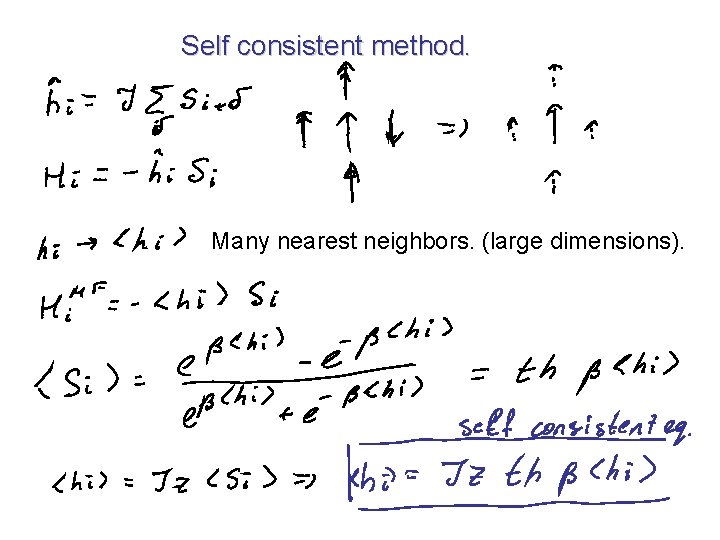 Self consistent method.
ĥi = J Σδ Si+δ
⇒
Hi = - ĥi Si
hi → <hi> Many nearest neighbors. (large dimensions).
Hi^MF = - <hi> Si
<Si> = (e^β<hi> - e^-β<hi>) / (e^β<hi> + e^-β<hi>) = th β<hi>
self consistent eq.
<hi> = Jz <Si> ⇒ <hi> = Jz th β<hi>